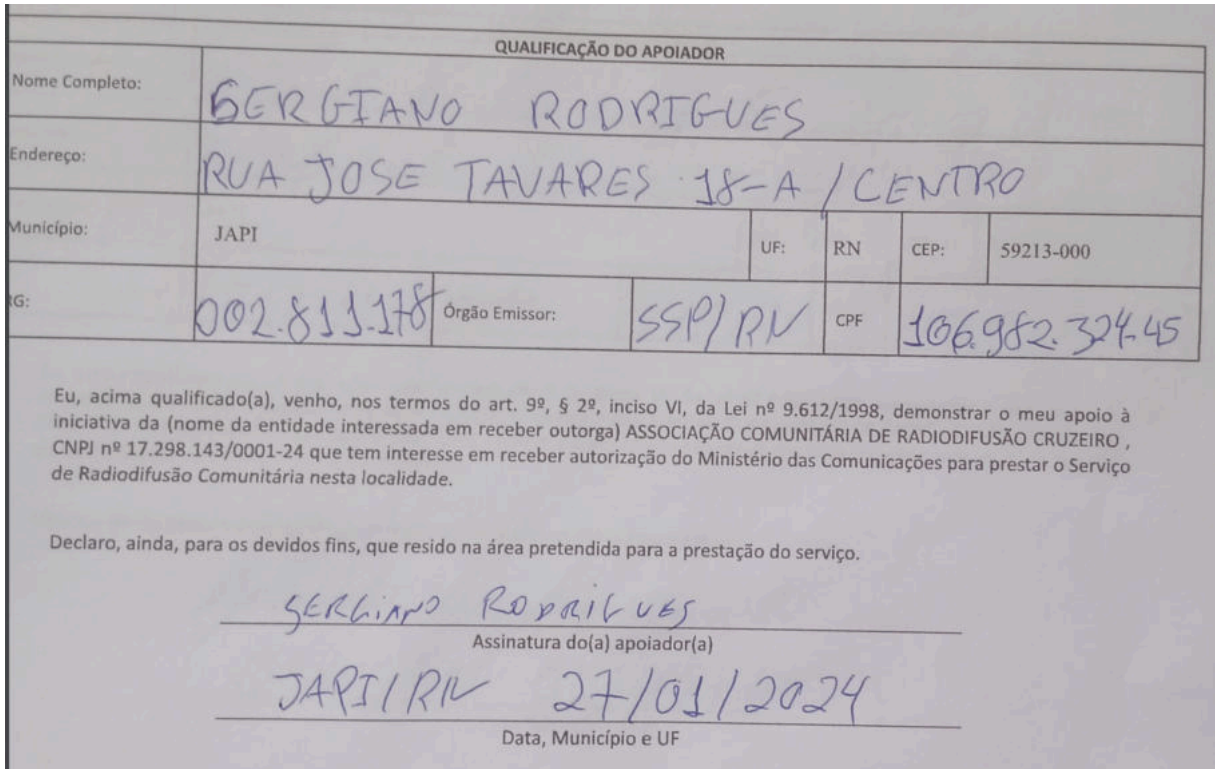 QUALIFICAÇÃO DO APOIADOR
Nome Completo: SERGIANO RODRIGUES
Endereço: RUA JOSE TAVARES 18-A / CENTRO
Município: JAPI UF: RN CEP: 59213-000
RG: 002.811.178 Órgão Emissor: SSP/RN CPF 106.982.324-45
Eu, acima qualificado(a), venho, nos termos do art. 9º, § 2º, inciso VI, da Lei nº 9.612/1998, demonstrar o meu apoio à
iniciativa da (nome da entidade interessada em receber outorga) ASSOCIAÇÃO COMUNITÁRIA DE RADIODIFUSÃO CRUZEIRO ,
CNPJ nº 17.298.143/0001-24 que tem interesse em receber autorização do Ministério das Comunicações para prestar o Serviço
de Radiodifusão Comunitária nesta localidade.
Declaro, ainda, para os devidos fins, que resido na área pretendida para a prestação do serviço.
SERGIANO RODRIGUES
Assinatura do(a) apoiador(a)
JAPI/RN 27/01/2024
Data, Município e UF